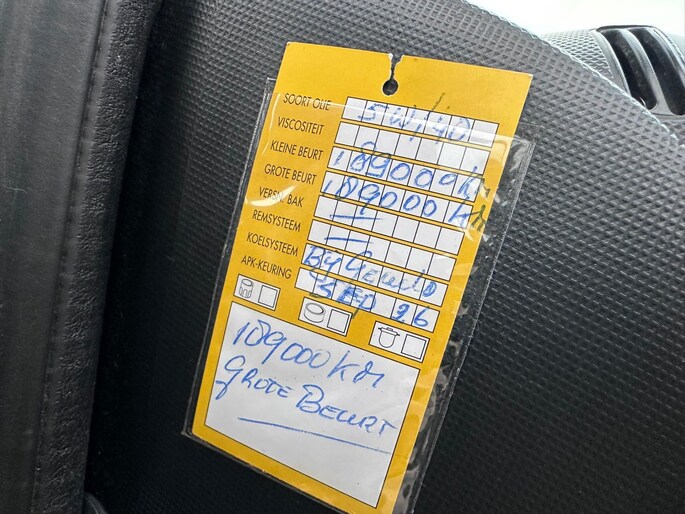 SOORT OLIE 5W,40
VISCOSITEIT
KLEINE BEURT 189000 km
GROTE BEURT 189000 KM
VERSN. BAK —
REMSYSTEEM —
KOELSYSTEEM Bygevuld
APK-KEURING SEP 26
189000 KM
GROTE BEURT